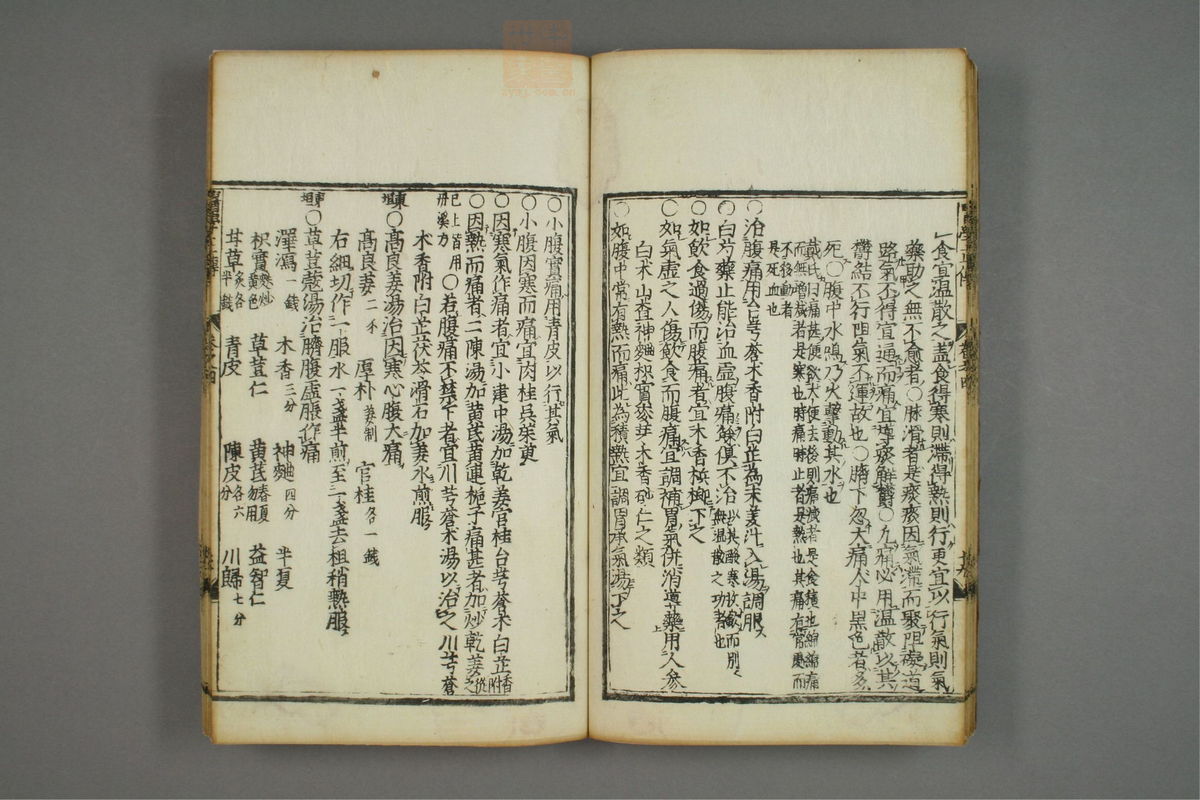 食宜溫散之蓋食得寒則滯得熱則行更宜以行氣則氣
藥助之無不愈者○脉滑者是痰痰因氣滯而聚阻礙道
路氣不得宣通而痛宜導痰解鬱○凡痛必用溫散以其
鬱結不行阻氣不運故也○臍下忽大痛人中黑色者多
死○腹中水鳴乃火擊動其水也
戴氏曰痛甚便欲大便去後則痛減者是食積也綿綿痛
而無增減者是寒也時痛時止者是熱也其痛有常處而
不移動者
是死血也
○治腹痛用台芎蒼朮香附白芷為末姜汁入湯調服
○白芍藥止能治血虛腹痛餘俱不治以其酸寒收歛而別
無溫散之功者也
○如飲食過傷而腹痛者宜木香梹榔丸下之
○如氣虛之人傷飲食而腹痛宜調補胃氣併消導藥用人參
白朮山査神麯枳實麥芽木香砂仁之類
○如腹中常有熱而痛此為積熱宜調胃承氣湯下之
○小腹實痛用青皮以行其氣
○小腹因寒而痛宜肉桂吳茱萸
○因寒氣作痛者宜小建中湯加乾姜官桂台芎蒼朮白芷香附
○因熱而痛者二陳湯加黃芩黃連梔子痛甚者加炒乾姜從之
已上皆用
丹溪方
○若腹痛不禁下者宜川芎蒼朮湯以治之川芎蒼
朮香附白芷茯苓滑石加姜水煎服
東垣○高良姜湯治因寒心腹大痛
高良姜二分 厚朴姜制 官桂各一錢
右細切作一服水一盞半煎至一盞去柤稍熱服
東垣○草荳蔲湯治臍腹虛脹作痛
澤瀉一錢 木香三分 神麯四分 半夏
枳實麩炒黃色 草荳仁 黃芪春夏勿用 益智仁
甘草炙各半錢 青皮 陳皮各六分 川歸七分